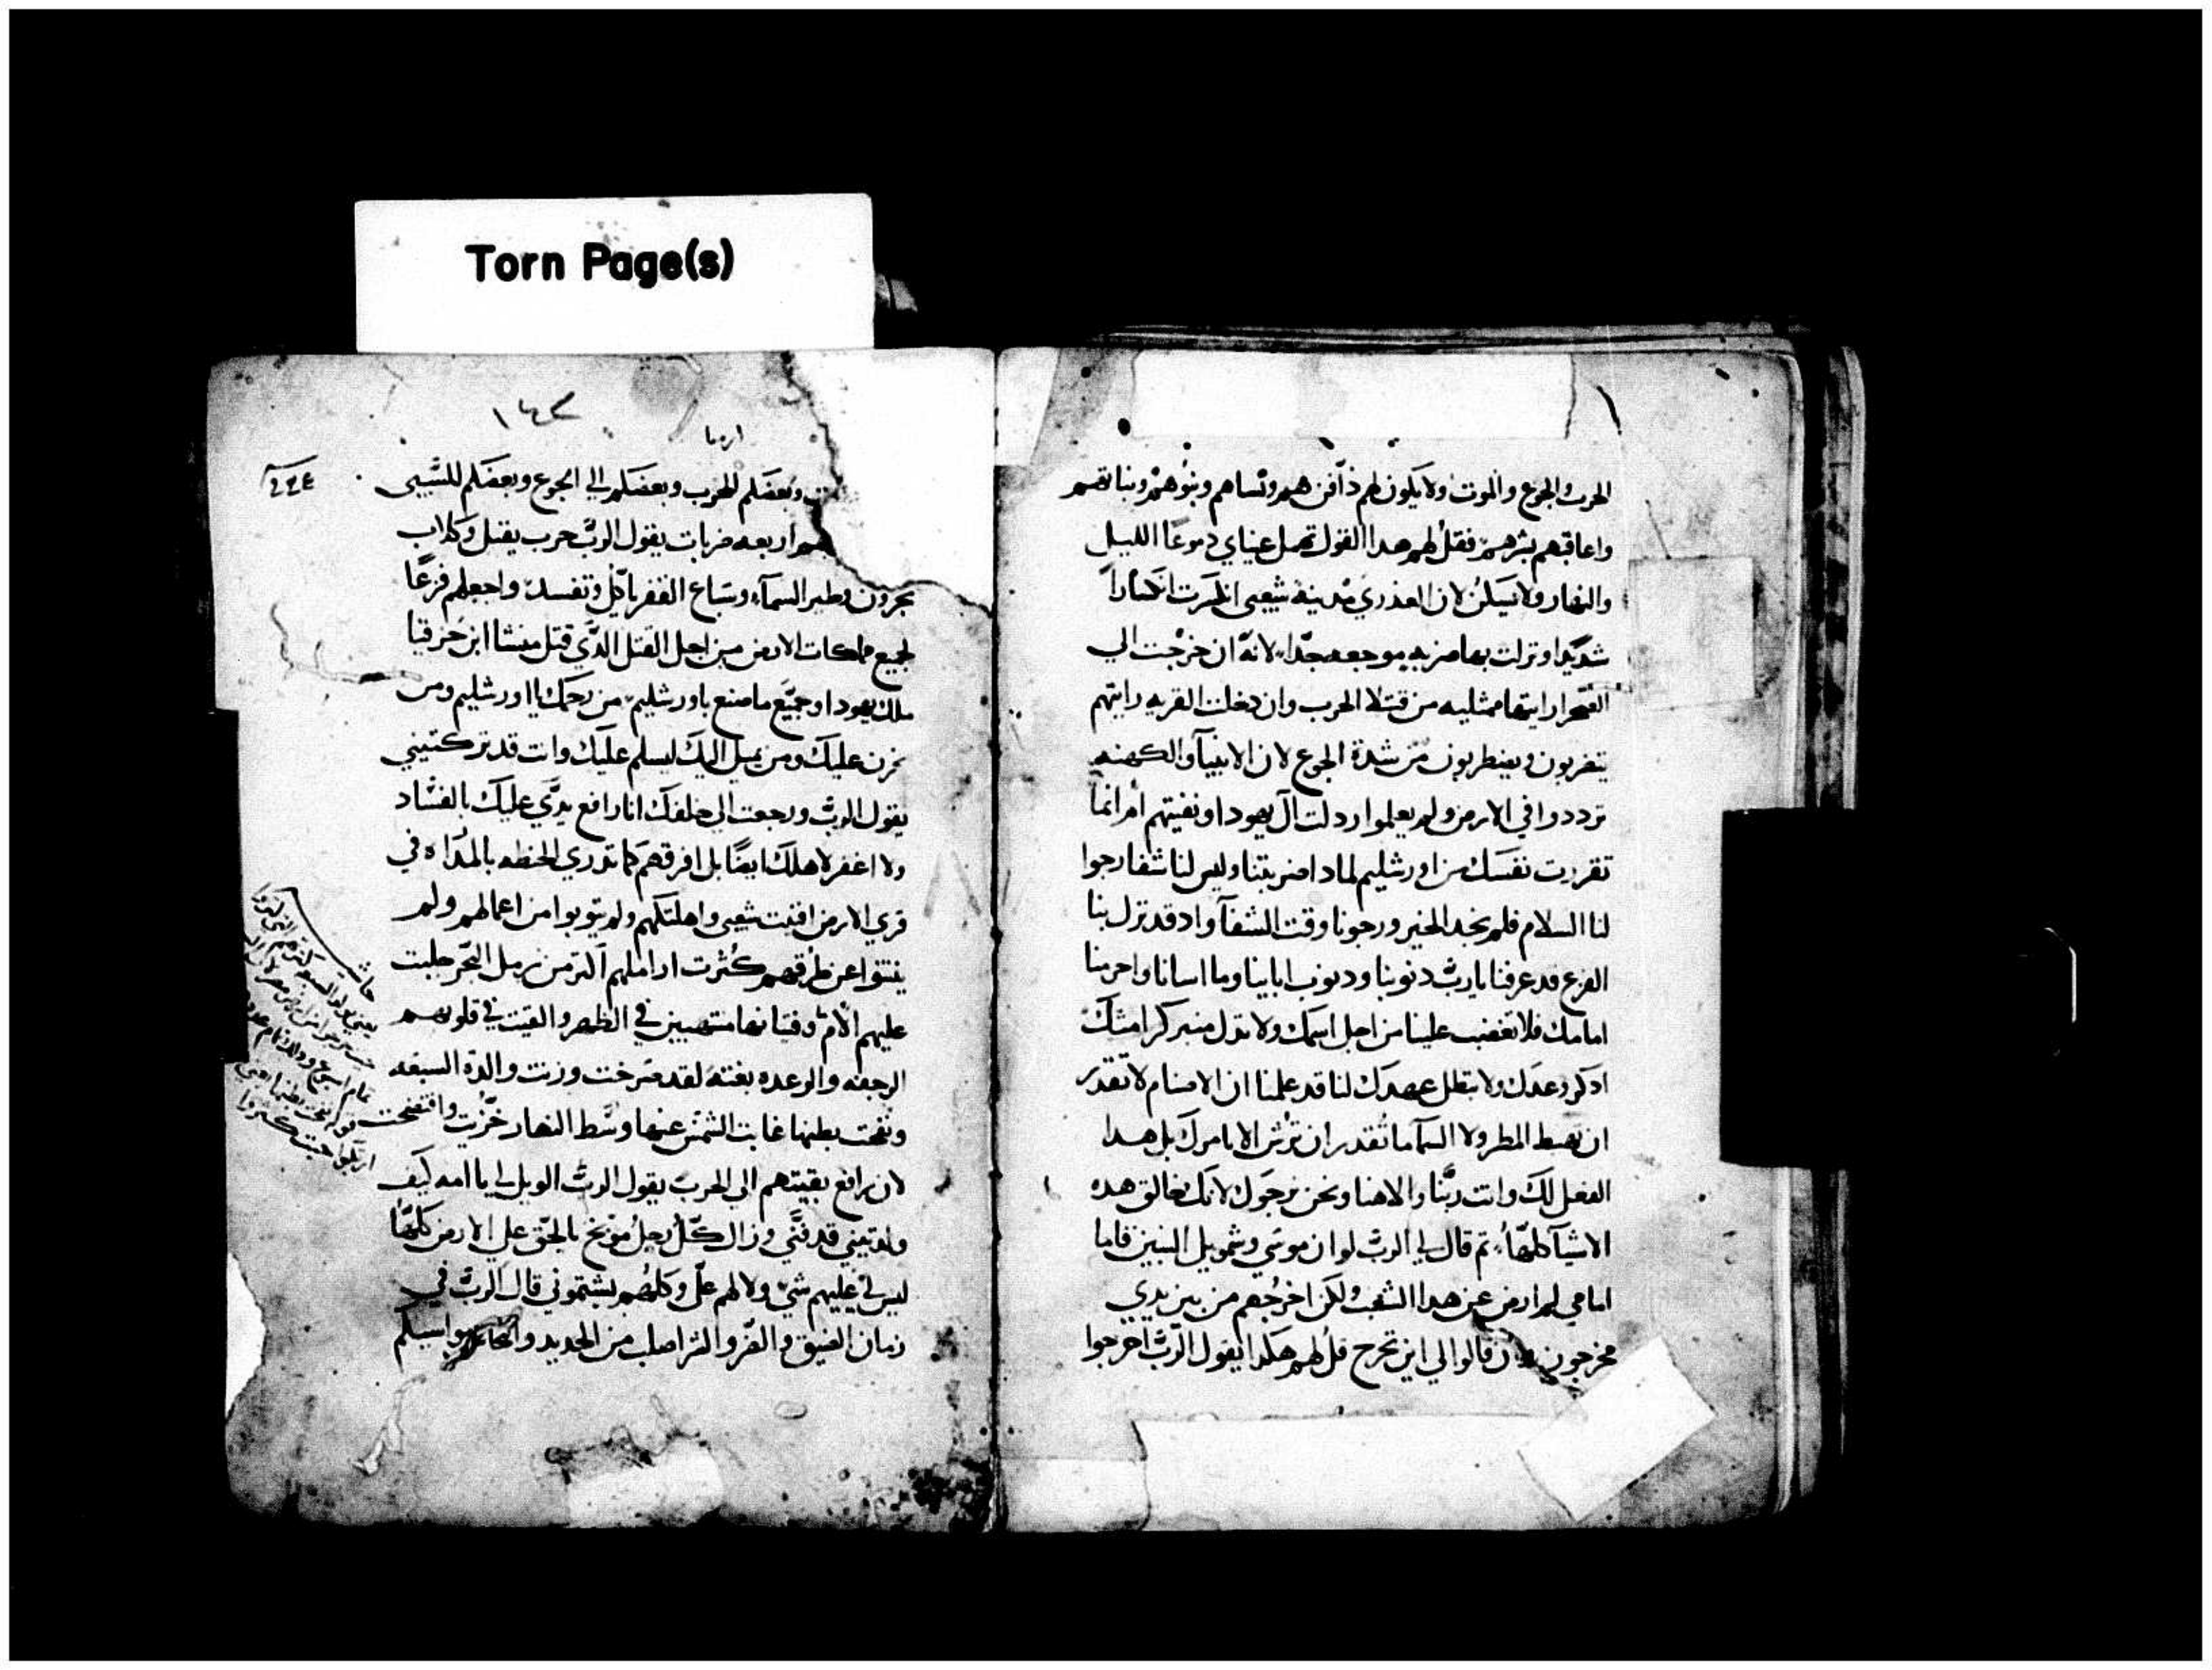 Torn Page(s)
الحرب والجوع والموت ولا يكون لهم دافن هم ونساهم وبنوهم وبناتهم
واعاقبهم بشرهم فقل لهم هدا القول تهمل عيناي دموعا الليل
والنهار ولا تسكن لان العذري مدينة شعبي انكسرت انكسارا
شديدا ونزلت بها ضربه موجعه جدا لانه ان خرجت الي
الصحرا رايتها ممتليه من قتلا الحرب وان دخلت القريه رايتهم
يتضربون ويضطربون من شدة الجوع لان الانبيا والكهنه
ترددوا في الارض ولم يعلموا اردلت آل يهودا ونفيتهم ام انما
تقررت نفسك من اورشليم لمادا ضربتنا وليس لنا شفا رجوا
لنا السلام فلم نجد الخير ورجونا وقت الشفا واد قد نزل بنا
الفزع قد عرفنا يارب دنوبنا ودنوب ابابنا وما اسانا واجرمنا
امامك فلا تغضب علينا من اجل اسمك ولا تدل منبر كرامتك
ادكر وعدك ولا تبطل عهدك لنا قد علمنا ان الاصنام لا تقدر
ان تهبط المطر ولا السما ما تقدر ان ترش الا بامرك بل هدا
الفعل لك وانت ربنا والاهنا ونحن نرجوك لانك خالق هده
الاشيا كلها ثم قال لي الرب لو ان موسي وشمويل النبيين قاما
امامي لم ارض عن هدا الشعب ولكن اخرجهم من بين يدي
مخرجون قالوا الي اين نخرج قل لهم هكدا يقول الرب اخرجوا
١٤٣
ارميا
٢٢٤
وبعضكم للحرب وبعضكم الي الجوع وبعضكم للسبي
اربعه ضربات يقول الرب حرب يقتل وكلاب
يجرون وطير السماء وسباع القفر ياكل وتفسد واجعلهم فزعا
لجميع مملكات الارض من اجل القتل الذي قتل منشا ابن حزقيا
ملك يهودا وجميع ما صنع باورشليم من رحمك يا اورشليم ومن
حزن عليك ومن يميل اليك ليسلم عليك وانت قد تركتيني
يقول الرب ورجعت الي خلفك انا رافع يدي عليك بالفساد
ولا اغفر لاهلك ايضا بل افرقهم كما تدري الحنطه بالمدراه في
قري الارض افنيت شعبي واهلكتهم ولم يتوبوا من اعمالهم ولم
ينتهوا عن طرقهم كثرت اراملهم اكثر من رمل البحر جلبت
عليهم الام وفتيانها منتهبين في الظهر والقيت في قلوبهم
الرجفه والرعده بغته لقد صرخت وزنت والدة السبعه
ونفخت بطنها غابت الشمس عنها وسط النهار خزيت وافتضحت
لان رافع بقيتهم الي الحرب يقول الرب الويل لي يا امه كيف
ولدتيني قد فني وزال كل رجل موبخ بالحق علي الارض كلها
ليس لي عليهم شي ولا لهم علي وكلهم يشتموني قال الرب في
زمان الضيق والضر والشر اصلب من الحديد والنحاس